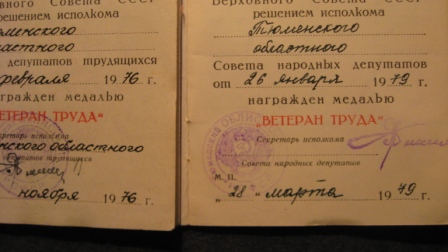 Верховного Совета СССР
решением исполкома
Тюменского
областного
депутатов трудящихся
февраля 1976 г.
награжден медалью
"ВЕТЕРАН ТРУДА"
Секретарь исполкома
областного
депутатов трудящихся
ноября 1976 г.
Верховного Совета СССР
решением исполкома
Тюменского
областного
Совета народных депутатов
от 26 января 1979 г.
награжден медалью
"ВЕТЕРАН ТРУДА"
Секретарь исполкома
Совета народных депутатов
М. П.
"28" марта 1979 г.